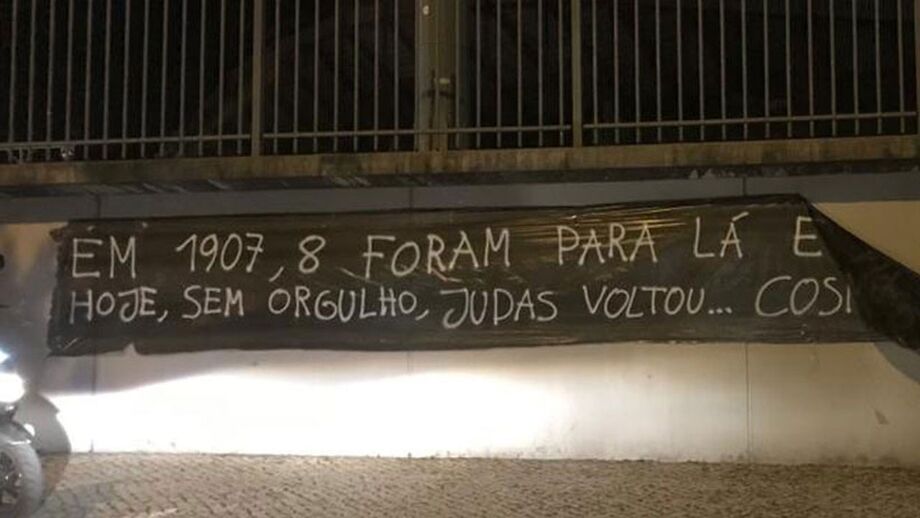 EM 1907, 8 FORAM PARA LÁ E
HOJE, SEM ORGULHO, JUDAS VOLTOU...